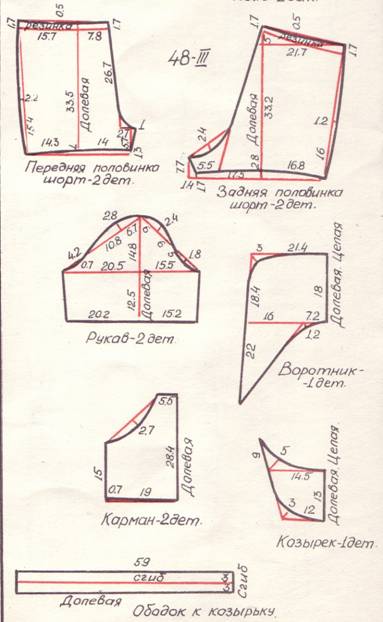 1.7
0.5
резинка
1.7
15.7
7.8
26.7
33.5
Долевая
15.4
14.3
7
14
1.5
1
Передняя половинка
шорт-2дет.
48-III
1.7
0.5
резинка
1.7
5
21.7
Долевая
33.2
1.2
24
7.7
5.5
2.8
16.8
16
1.4
1.7
17.5
Задняя половинка
шорт-2дет.
2.8
2.4
6.7
6
10.8
14.8
6
5
4.2
1.8
0.7
20.5
15.5
12.5
Долевая
20.2
15.2
Рукав-2дет.
3
21.4
18.4
18
Долевая. Целая
16
7.2
1.2
22
Воротник-
-1дет.
5.5
2.7
15
28.4
Долевая
0.7
19
Карман-2дет.
9
5
14.5
13
3
12
Долевая. Целая
Козырек-1дет.
59
сгиб
3
3
Сгиб
Долевая
Ободок к козырьку.